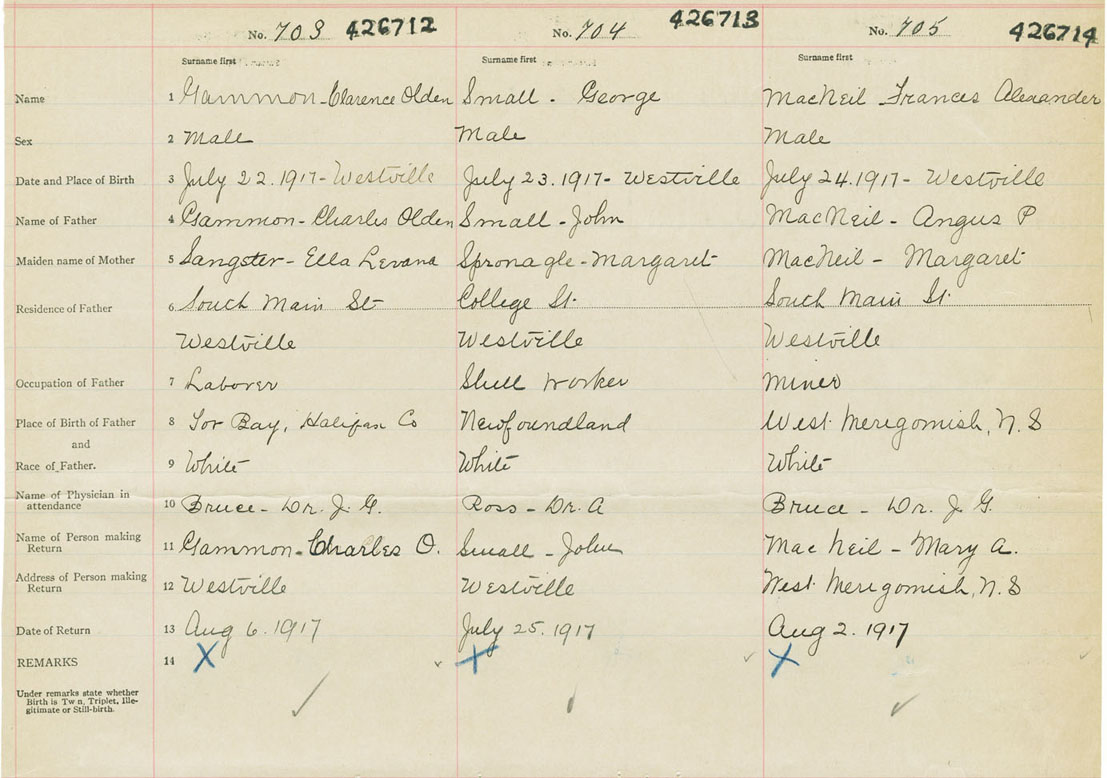 No. 703 426712 No. 704 426713 No. 705 426714
Surname first Surname first Surname first
Name 1 Gammon - Clarence Olden Small - George MacNeil Frances Alexander
Sex 2 Male Male Male
Date and Place of Birth 3 July 22. 1917 - Westville July 23. 1917 - Westville July 24. 1917 - Westville
Name of Father 4 Gammon - Charles Olden Small - John MacNeil - Angus P
Maiden name of Mother 5 Sangster - Ella Levana Spronagle - Margaret MacNeil - Margaret
Residence of Father 6 South Main St College St. South Main St.
Westville Westville Westville
Occupation of Father 7 Laborer Shell Worker Miner
Place of Birth of Father 8 Tor Bay, Halifax Co Newfoundland West Merigomish, N. S
and
Race of Father. 9 White White White
Name of Physician in
attendance 10 Bruce - Dr. J. G. Ross - Dr. A Bruce - Dr. J G.
Name of Person making
Return 11 Gammon - Charles O. Small - John MacNeil - Mary A.
Address of Person making
Return 12 Westville Westville West Merigomish, N. S
Date of Return 13 Aug 6. 1917 July 25. 1917 Aug 2. 1917
REMARKS 14 X X X
Under remarks state whether
Birth is Tw n, Triplet, Ille-
gitimate or Still-birth.